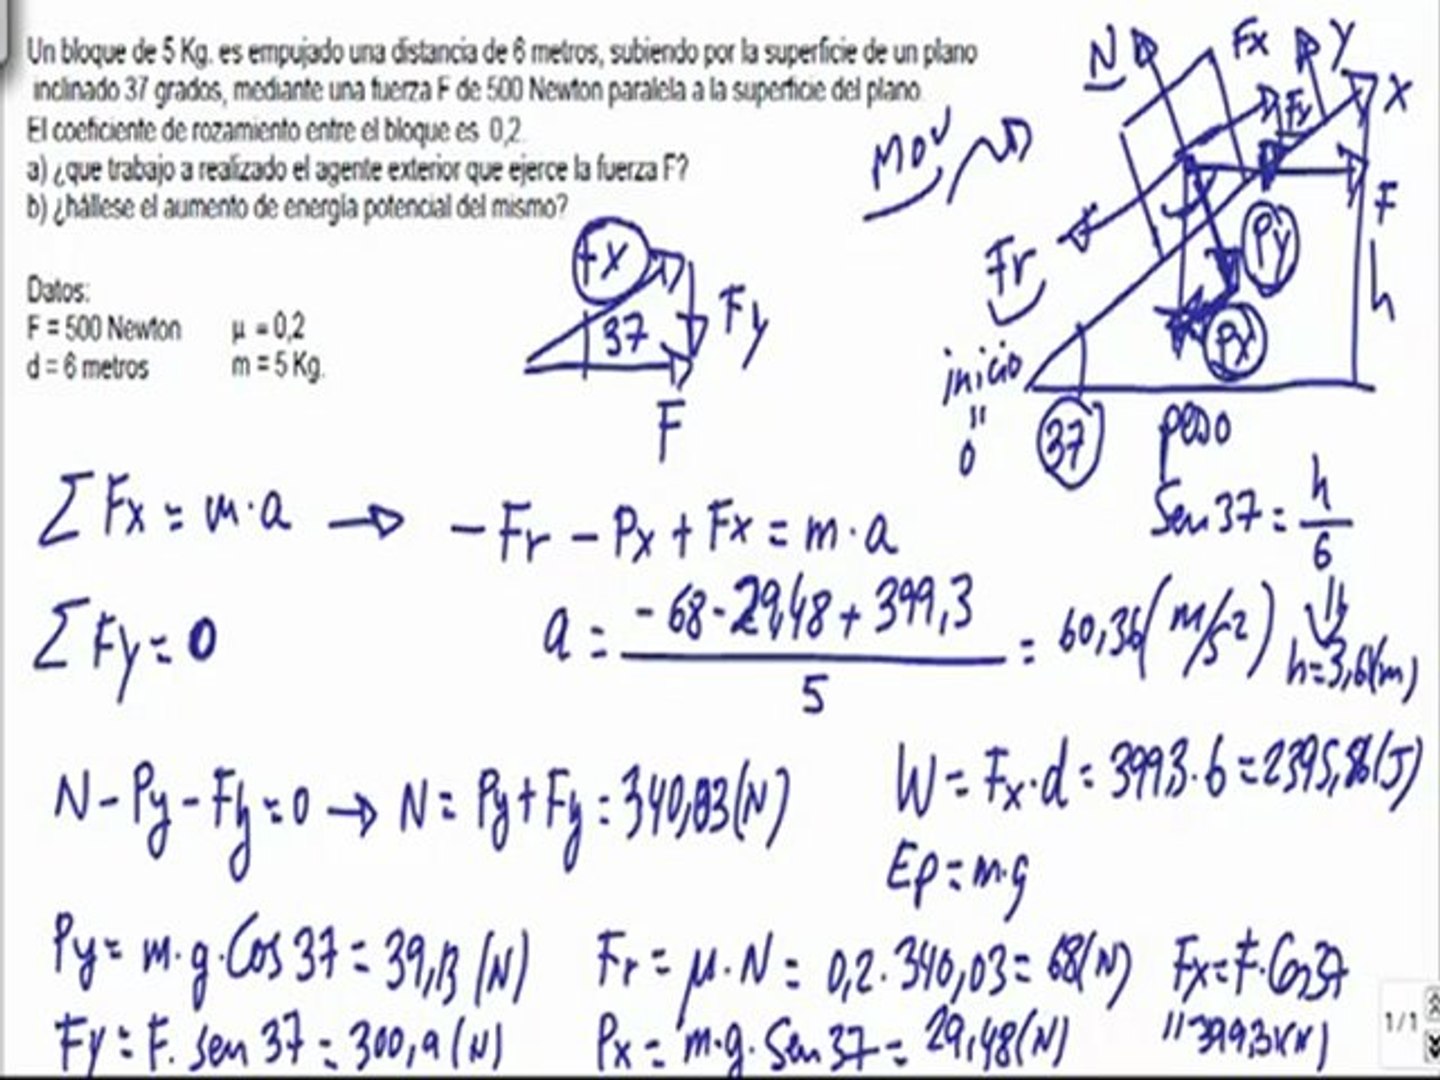 Un bloque de 5 Kg. es empujado una distancia de 6 metros, subiendo por la superficie de un plano
inclinado 37 grados, mediante una fuerza F de 500 Newton paralela a la superficie del plano
El coeficiente de rozamiento entre el bloque es 0,2.
a) ¿que trabajo a realizado el agente exterior que ejerce la fuerza F?
b) ¿hállese el aumento de energía potencial del mismo?
Datos:
F = 500 Newton µ = 0,2
d = 6 metros m = 5 Kg.
Fx
37
Fy
F
Mov
N
Fx
Y
X
Fr
Py
Px
F
h
inicio
"
0
37
peso
Sen 37 = h/6
h = 3,61(m)
∑ Fx = m · a → - Fr - Px + Fx = m · a
∑ Fy = 0
a = (- 68 - 29,48 + 399,3) / 5 = 60,36 (m/s²)
N - Py - Fy = 0 → N = Py + Fy = 340,03 (N)
W = Fx · d = 399,3 · 6 = 2395,86 (J)
Ep = m·g
Py = m·g·Cos 37 = 39,13 (N)
Fr = µ · N = 0,2 · 340,03 = 68(N)
Fx = F·Cos 37
Fy = F. sen 37 = 300,9 (N)
Px = m·g· Sen 37 = 29,48(N)
" 399,3 (N)
1/1